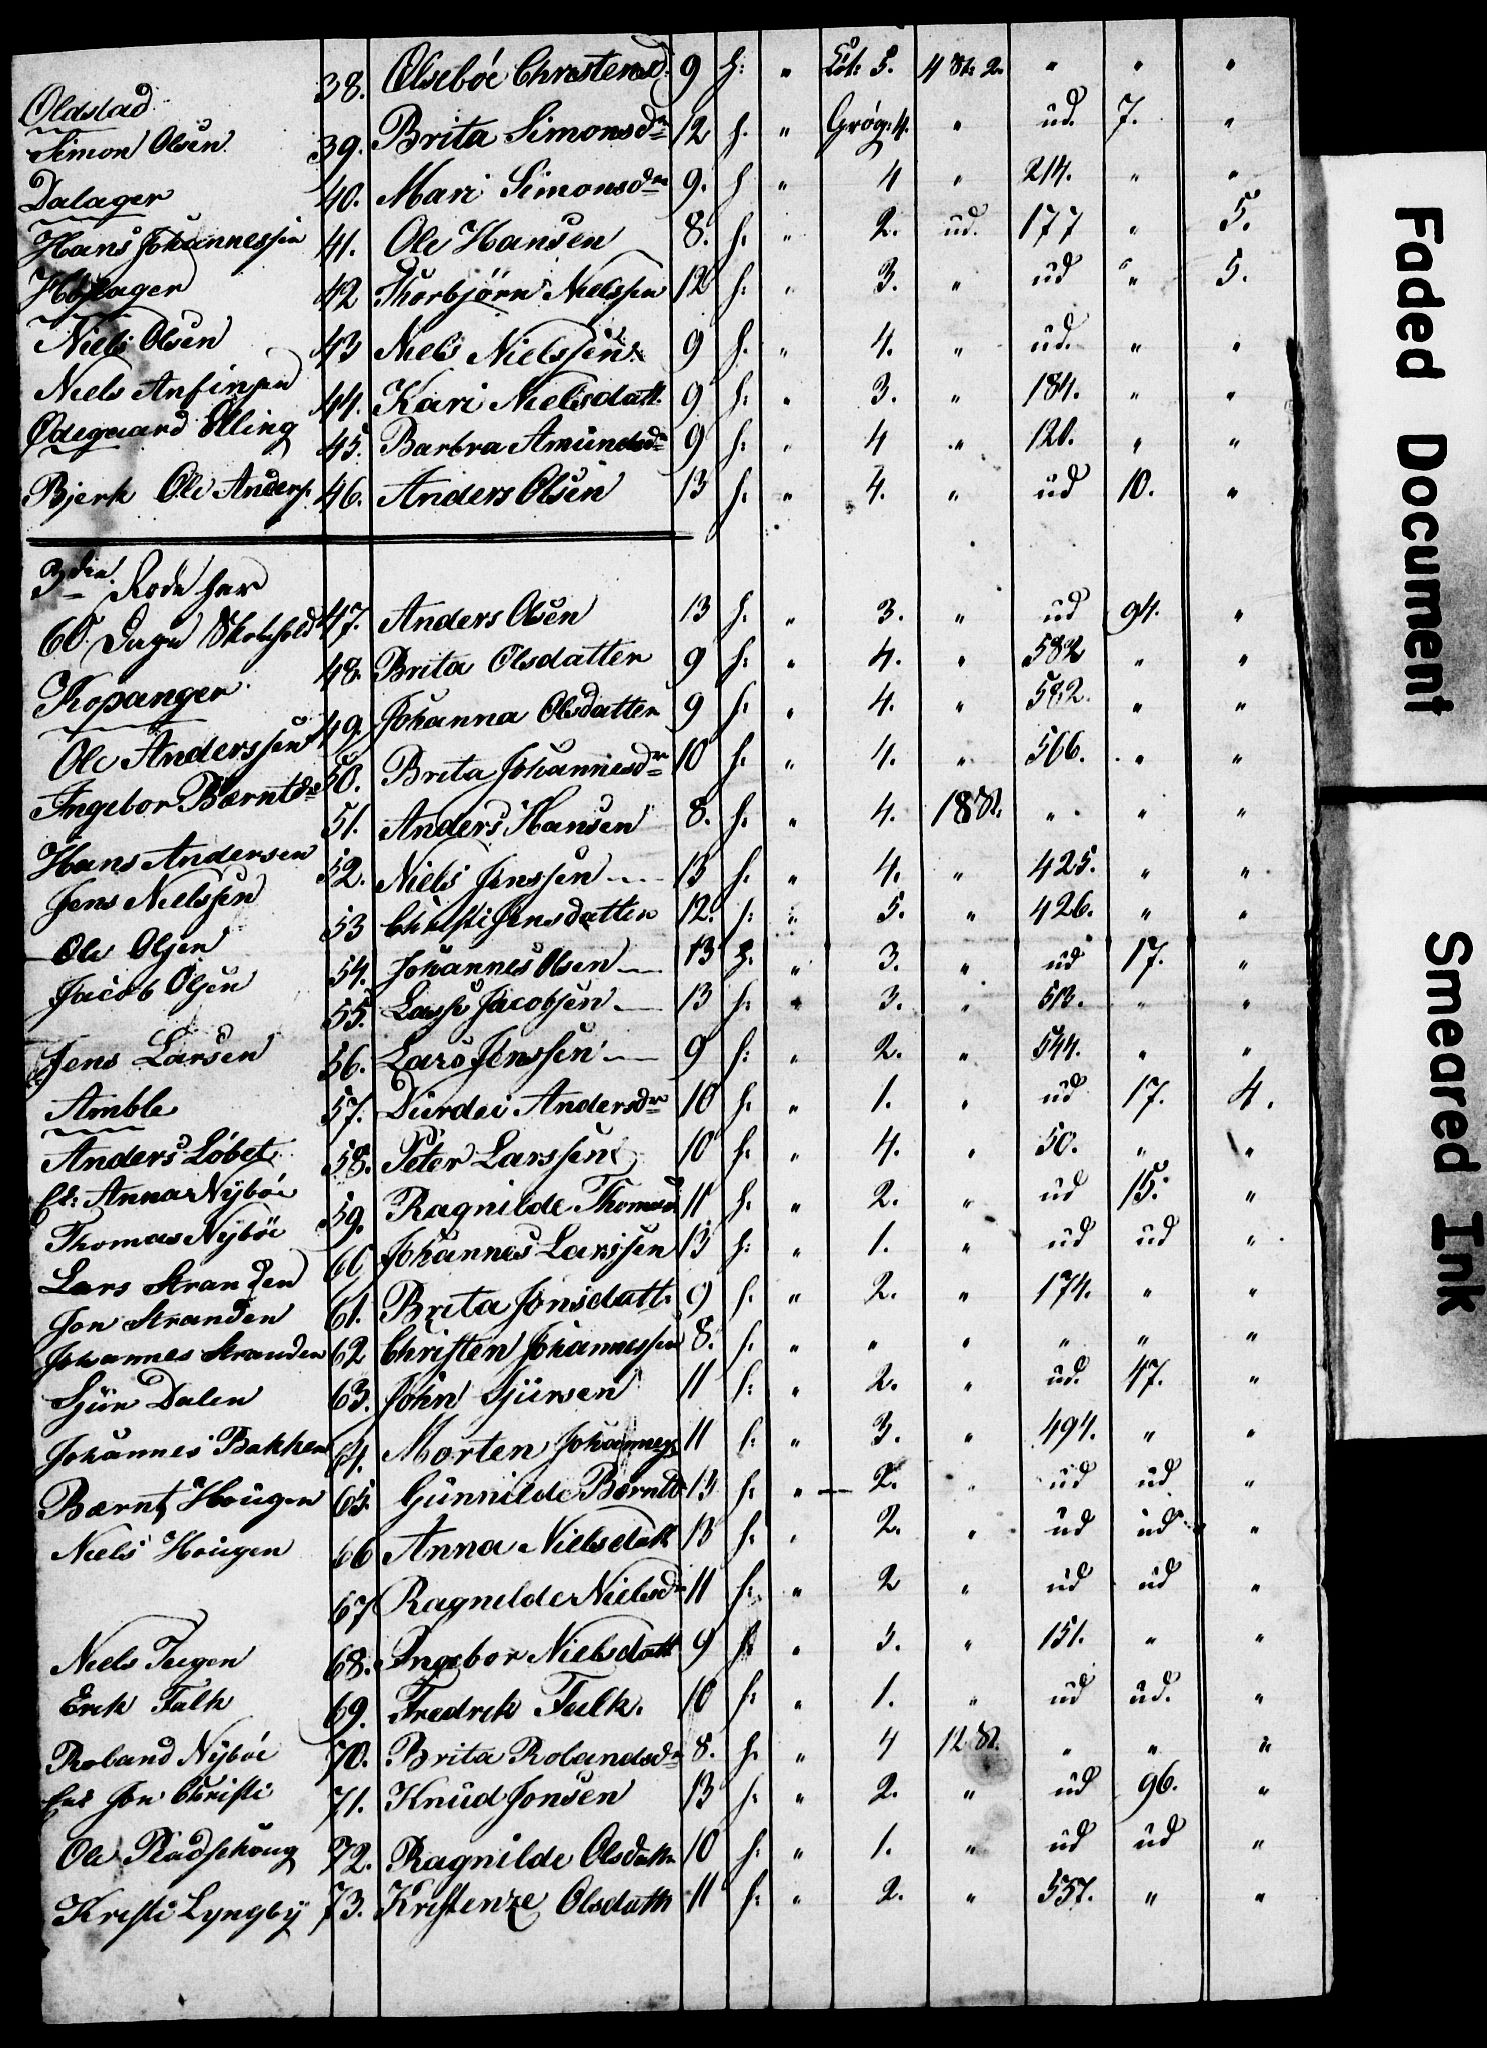 38. Olsebóe Chrestensd. 9 h: " Löt: 5. 4 St: 2. " " "
Oldstad
Simon Olsen 39. Brita Simonsdr 12 h. " Grög: 4. " ud. 7. "
Dalager 40. Mari Simonsdr 9. h " 4 " 214. " "
Hans Johannessen 41. Ole Hansen 8. h. " 2. ud. 177 " 5.
Höjager 42 Thorbjörn Nielssen 12 h. " 3. " ud " 5.
Niels Olsen 43 Niels Nielssen 9 h. " 4. " ud. " "
Niels Anfinsen 44. Kari Nielsdatt. 9 h. " 3. " 184. " "
Ødegaard Elling 45. Barbra Amundsdr 9 h. " 4 " 120. " "
Bjerk Ole Anders. 46. Anders Olsen 13 h. " 4. " ud 10. "
3die Rode har
60 Dage Skolehold 47. Anders Olsen 13 h. " 3. " ud 94. "
48. Brita Olsdatter 9 h. " 4. " 582 " "
Kopanger 49. Johanna Olsdatter 9 h. " 4. " 582. " "
Ole Anderssen 50. Brita Johannesdr 10 h. " 4. " 566. " "
Ingebor Bærntdr 51. Anders Hansen 8. h. " 4. 18 St. " " "
Hans Andersen 52. Niels Jenssen 13 h. " 4. " 425. " "
Jens Nielssen 53 Christi Jensdatter 12. h: " 5. " 426. " "
Ole Olsen 54. Johannes Olsen 13 h. " 3. " ud 17. "
Jacob Olsen 55. Lasse Jacobsen 13 h: " 3. " 513. " "
Jens Larsen 56. Lars Jenssen 9 h: " 2. " 544. " "
Amble 57. Dierdei Andersdr 10 h. " 1. " ud 17. 4.
Anders Löbet 58. Peter Larssen 10 h. " 4. " 50. " "
Et: Anna Nÿbóe 59. Ragnilde Thomasd 11 h. " 2. " ud 15. "
Thomas Nÿbóe 60 Johannes Larssen 13 h: " 1. " ud ud "
Lars Stranden 61. Brita Jonsdatt. 9 h. " 2. " 174. " "
Jon Stranden
Johannes Stranden 62 Christen Johannessen 8. h. " " " " " "
Sjür Dalen 63. John Sjürsen 11 h: " 2. " ud. 47. "
Johannes Bakken 64. Morten Johannes 11 h: " 3. " 494. " "
Bærnt Hougen 65. Günnilde Bærntd 13 h: " 2. " ud ud "
Niels Hougen 66 Anna Nielsdatt 13 h: " 2. " ud ud "
67 Ragnilde Nielsdr 11 h: " 2 " ud ud "
Niels Teigen 68. Ingebor Nielsdatt 9 h " 3. " 151. " "
Erik Falk 69. Fredrek Falk. 10 h: " 1. " ud ud. "
Roland Nÿbóe 70. Brita Rolandsdr 8. h. " 4 12 St. " " "
Jon Christi 71. Knud Jonsen 13 h: " 2. " ud 96. "
Ole Rüdschoug 72. Ragnilde Olsdatt 10 h: " 1. " ud ud "
Kresti Lyngbÿ 73. Krestenze Olsdatt 11 h: " 2. " 557. " "
Faded Document
Smeared Ink